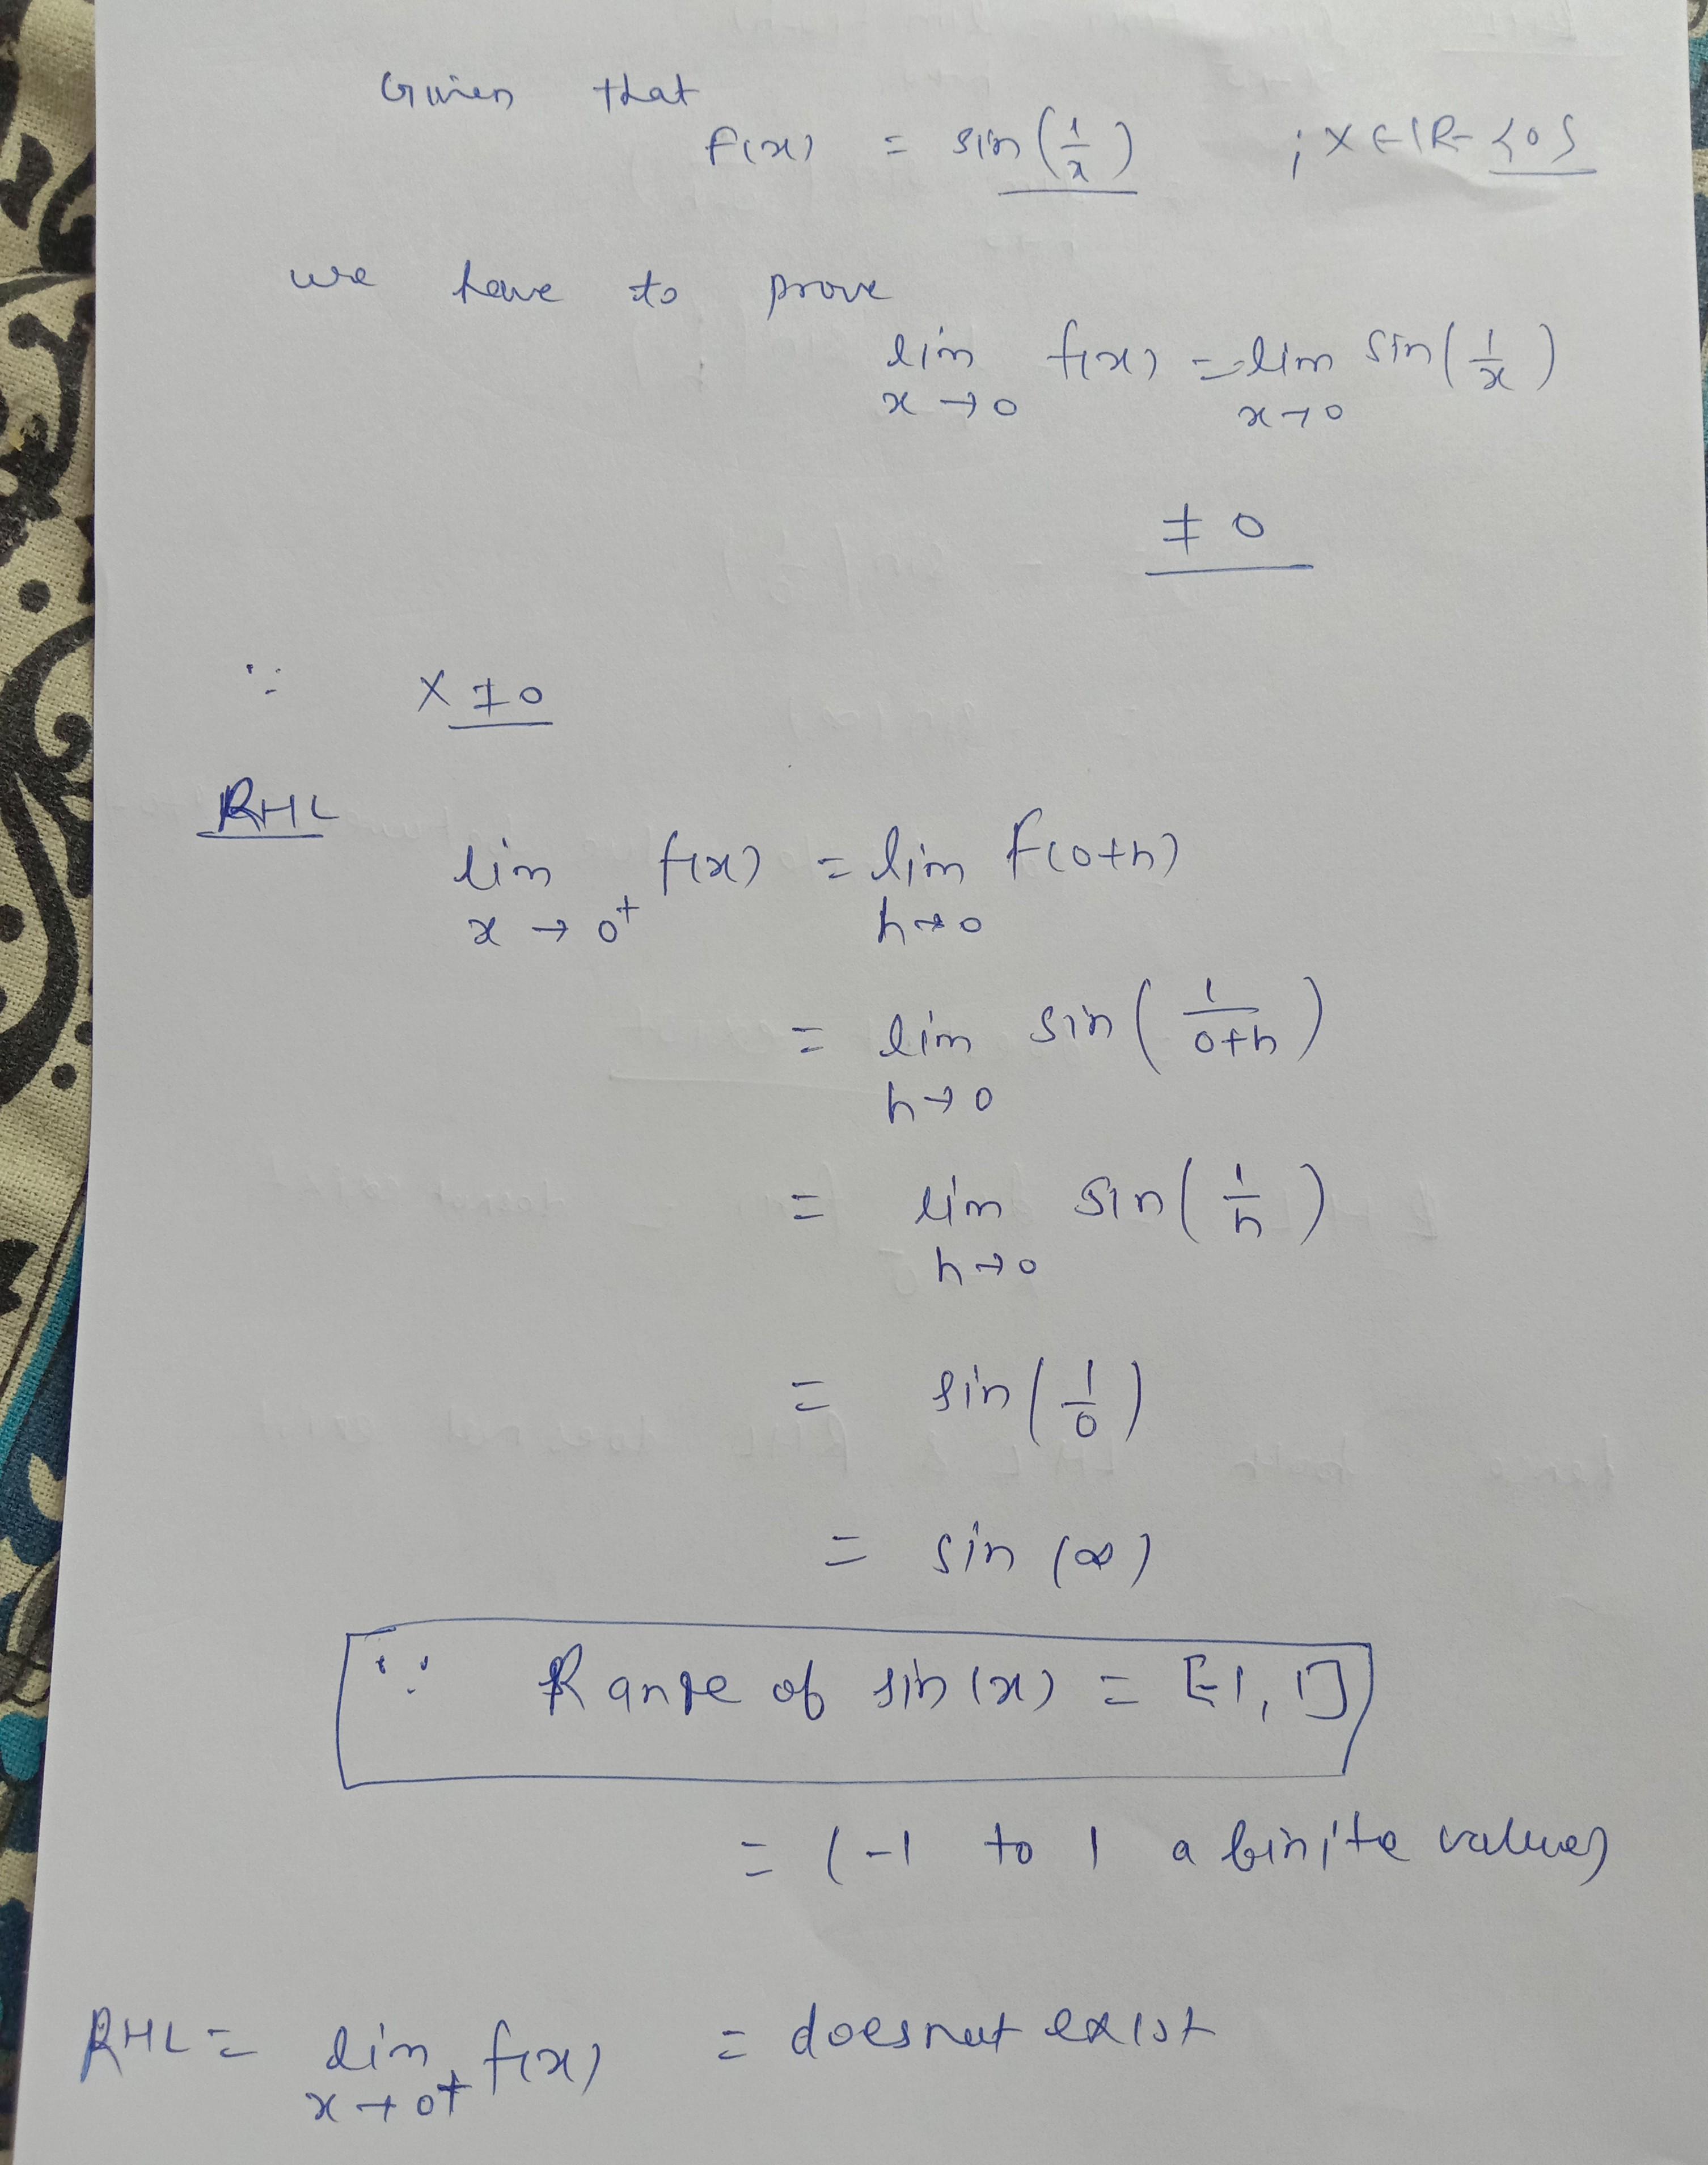 Given that
f(x) = sin(1/x) ; x ∈ IR - {0}
we have to prove
lim x→0 f(x) = lim x→0 sin(1/x)
≠ 0
∵ x ≠ 0
RHL
lim x→0⁺ f(x) = lim h→0 f(0+h)
= lim h→0 sin(1/(0+h))
= lim h→0 sin(1/h)
= sin(1/0)
= sin(∞)
∵ Range of sin(x) = [-1, 1]
= (-1 to 1 a finite values)
RHL = lim x→0+ f(x) = doesnot exist